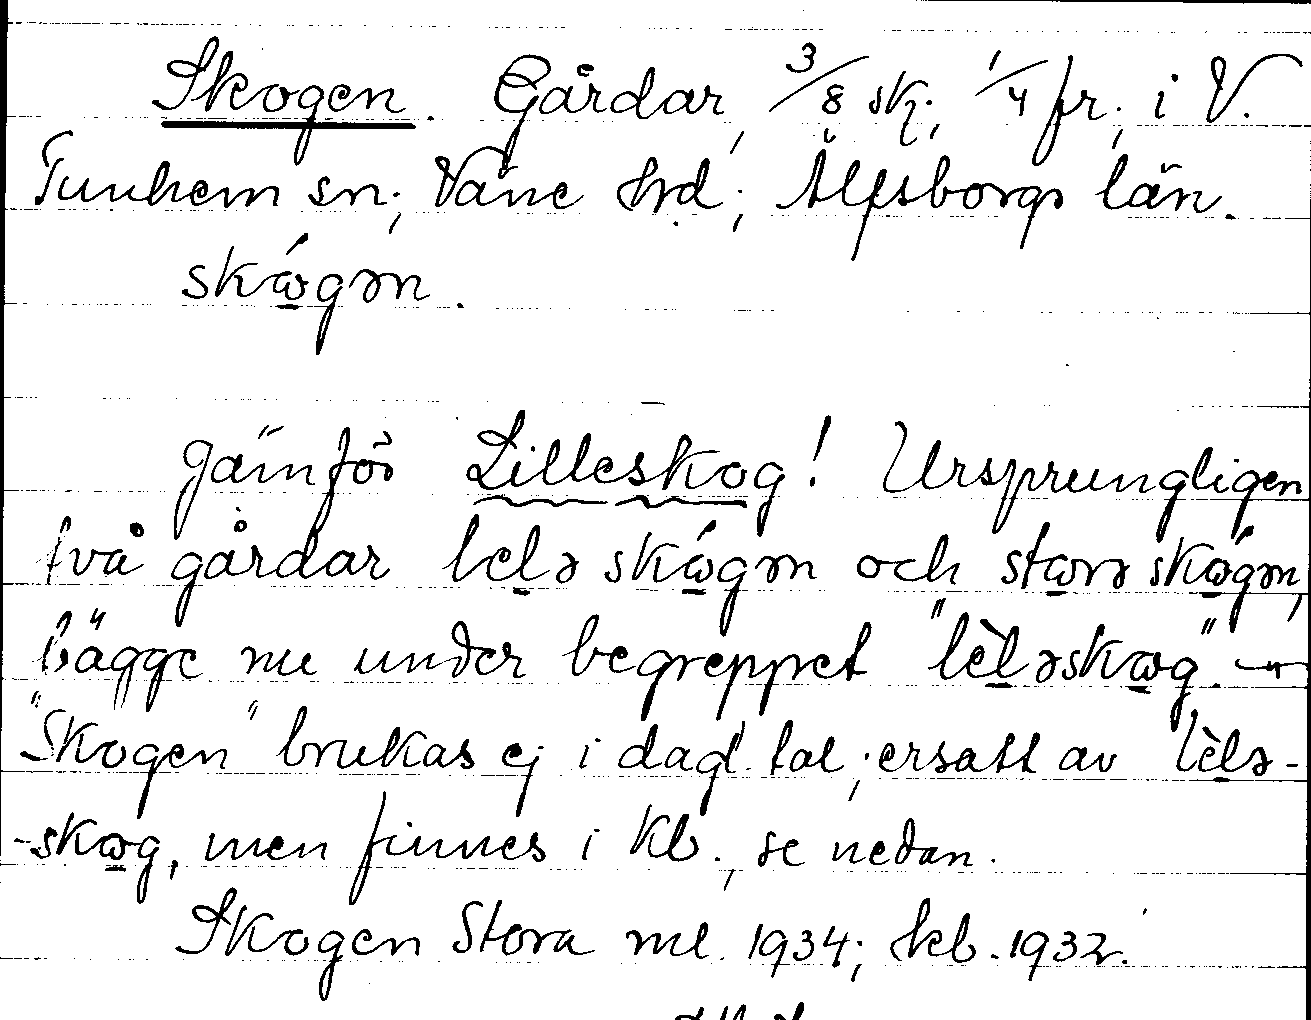 Skogen. Gårdar, 3/8 sk; 1/4 fr; i V.
Tunhem sn; Väne hrd; Älfsborgs län.
skɷ́gən.
Jämför Lilleskog! Ursprungligen
två gårdar lelə skɷ́gən och stɷrə skɷ́gən,
bägge nu under begreppet "lèləskɷg". –
"Skogen" brukas ej i dagl. tal; ersatt av lèlə-
-skɷg, men finnes i kb., se nedan.
Skogen Stora ml. 1934; kb. 1932.